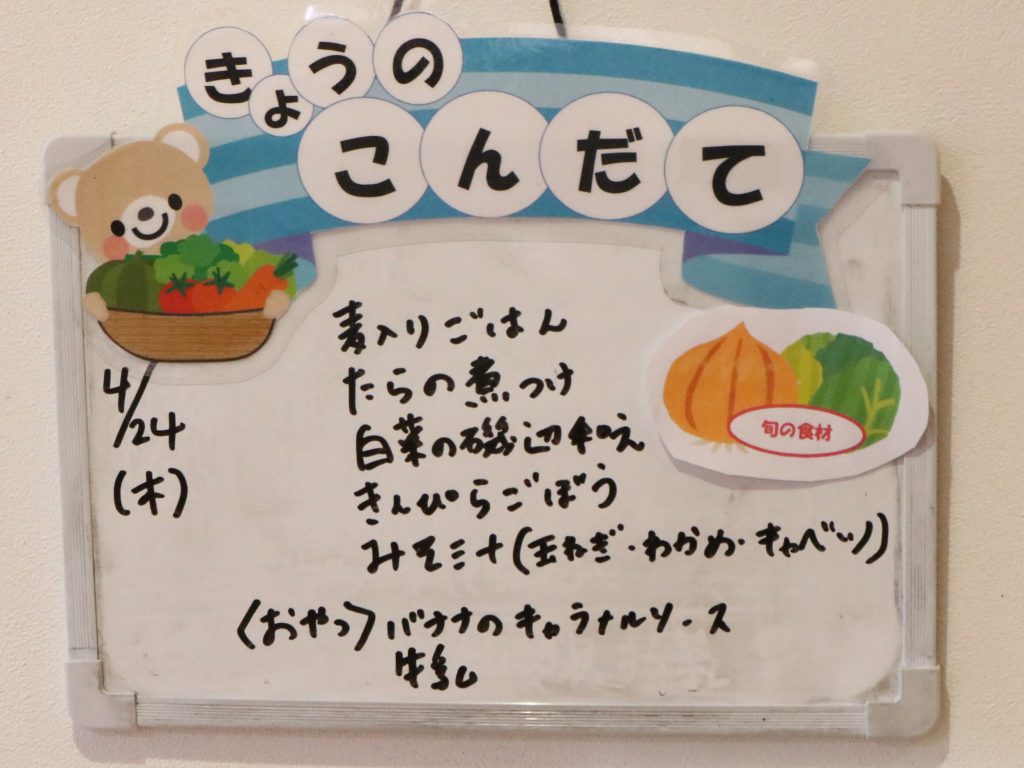 きょうの
こんだて
4/24
(木)
麦入りごはん
たらの煮つけ
白菜の磯辺和え
きんぴらごぼう
みそ汁(玉ねぎ・わかめ・キャベツ)
旬の食材
〈おやつ〉バナナのキャラメルソース
牛乳